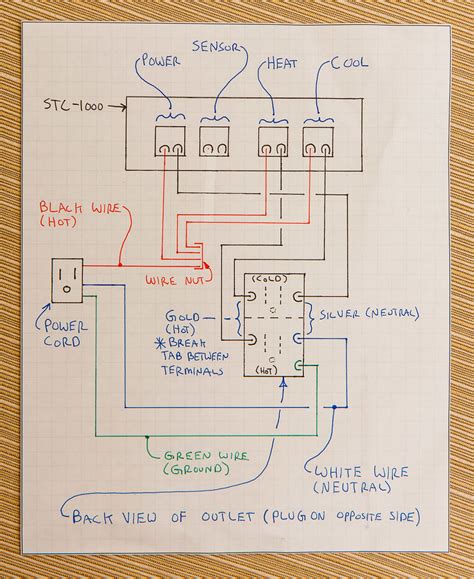 POWER
SENSOR
HEAT
COOL
STC-1000
BLACK WIRE
(HOT)
WIRE NUT
POWER
CORD
(COLD)
GOLD
(HOT)
* BREAK
TAB BETWEEN
TERMINALS
SILVER (NEUTRAL)
(HOT)
GREEN WIRE
(GROUND)
WHITE WIRE
(NEUTRAL)
BACK VIEW OF OUTLET (PLUG ON OPPOSITE SIDE)